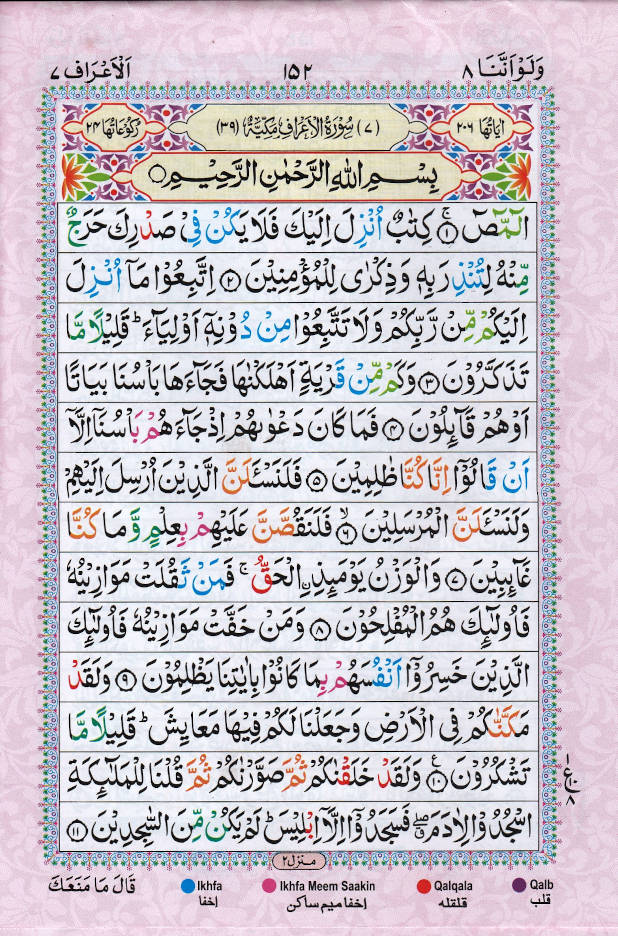 وَلَوْاَنَّنَا ۸ ۱۵۲ اَلْاَعْرَاف ۷
اٰیَاتُهَا ۲۰۶ (۷) سُوْرَةُ الْاَعْرَافِ مَكِّيَّةٌ (۳۹) رُكُوْعَاتُهَا ۲۴
بِسْمِ اللّٰهِ الرَّحْمٰنِ الرَّحِيْمِ ○
الٓمّٓصٓ ۚ﴿۱﴾ كِتٰبٌ اُنْزِلَ اِلَيْكَ فَلَا يَكُنْ فِيْ صَدْرِكَ حَرَجٌ
مِّنْهُ لِتُنْذِرَ بِهٖ وَذِكْرٰى لِلْمُؤْمِنِيْنَ ﴿۲﴾ اِتَّبِعُوْا مَاۤ اُنْزِلَ
اِلَيْكُمْ مِّنْ رَّبِّكُمْ وَلَا تَتَّبِعُوْا مِنْ دُوْنِهٖۤ اَوْلِيَآءَ ؕ قَلِيْلًا مَّا
تَذَكَّرُوْنَ ﴿۳﴾ وَكَمْ مِّنْ قَرْيَةٍ اَهْلَكْنٰهَا فَجَآءَهَا بَاْسُنَا بَيَاتًا
اَوْهُمْ قَآئِلُوْنَ ﴿۴﴾ فَمَا كَانَ دَعْوٰىهُمْ اِذْجَآءَهُمْ بَاْسُنَاۤ اِلَّاۤ
اَنْ قَالُوْۤا اِنَّا كُنَّا ظٰلِمِيْنَ ﴿۵﴾ فَلَنَسْـَٔلَنَّ الَّذِيْنَ اُرْسِلَ اِلَيْهِمْ
وَلَنَسْـَٔلَنَّ الْمُرْسَلِيْنَ ۙ﴿۶﴾ فَلَنَقُصَّنَّ عَلَيْهِمْ بِعِلْمٍ وَّمَا كُنَّا
غَآئِبِيْنَ ﴿۷﴾ وَالْوَزْنُ يَوْمَئِذِ ۨالْحَقُّ ۚ فَمَنْ ثَقُلَتْ مَوَازِيْنُهٗ
فَاُولٰٓئِكَ هُمُ الْمُفْلِحُوْنَ ﴿۸﴾ وَمَنْ خَفَّتْ مَوَازِيْنُهٗ فَاُولٰٓئِكَ
الَّذِيْنَ خَسِرُوْۤا اَنْفُسَهُمْ بِمَا كَانُوْا بِاٰيٰتِنَا يَظْلِمُوْنَ ﴿۹﴾ وَلَقَدْ
مَكَّنّٰكُمْ فِي الْاَرْضِ وَجَعَلْنَا لَكُمْ فِيْهَا مَعَايِشَ ؕ قَلِيْلًا مَّا
تَشْكُرُوْنَ ﴿۱۰﴾ۧ وَلَقَدْ خَلَقْنٰكُمْ ثُمَّ صَوَّرْنٰكُمْ ثُمَّ قُلْنَا لِلْمَلٰٓئِكَةِ
اسْجُدُوْا لِاٰدَمَ ۖ فَسَجَدُوْۤا اِلَّاۤ اِبْلِيْسَ ؕ لَمْ يَكُنْ مِّنَ السّٰجِدِيْنَ ﴿۱۱﴾
۱
ع ۱۰
۸
منزل۲
قَالَ مَا مَنَعَكَ
Ikhfa Ikhfa Meem Saakin Qalqala Qalb
اخفا اخفا میم ساکن قلقله قلب